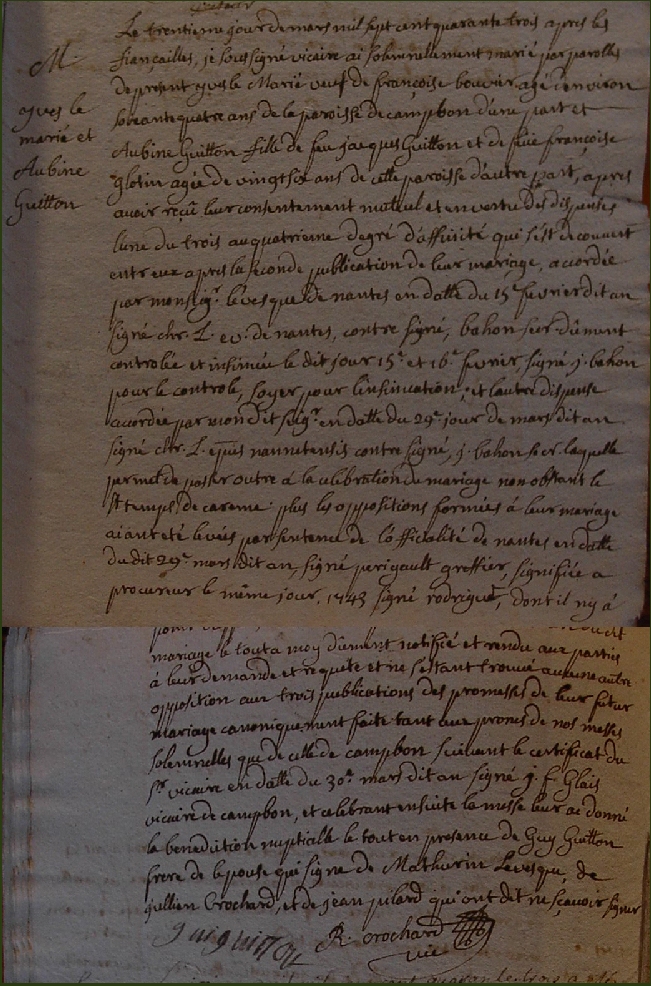 M
yves le
marié et
Aubine
Guitton
Le trentieme jour de mars mil sept cent quarante trois apres les
fiançailles, je soussigné vicaire ai solemnellement marié par parolles
de present yves le Marié veuf de françoise bouvier agé d'environ
soixante quatre ans de la paroisse de campbon d'une part et
Aubine Guitton fille de feu jacques Guitton et de feüe françoise
glotin agée de vingt six ans de cette paroisse d'autre part, apres
avoir reçu leur consentement mutuel et en vertu des dispenses
lune du trois au quatrieme degré d'affinité qui s'est decouvert
entr eux apres la seconde publication de leur mariage, accordée
par monseigr. lévesque de nantes en datte du 15e fevrier dit an
signé chr. L. ev. de nantes, contre signé, bahon secr. dûment
controllée et insinuée le dit jour 15e et 16e fevrier, signé j. bahon
pour le controle, soyer pour l'insinuation; et l'autre dispense
accordée par mon dit seigr. en datte du 29e jour de mars dit an
signé chr. L. epûs nannetensis contre signé, j. bahon secr. laquelle
permet de passer outre a la celebration du mariage non obstant le
st temps de careme: plus les oppositions formées à leur mariage
aiant eté levées par sentence de lofficialité de nantes en datte
du dit 29e mars dit an, signé perigault greffier, signifiée a
procureur le même jour, 1743 signé rodrigue, dont il ny à
mariage le tout a moy dûment notifié et rendu aux parties
à leur demande et requete et ne s'estant trouvé aucune autre
opposition aux trois publications des promesses de leur futur
mariage canoniquement faite tant aux prones de nos messes
solemnelles que de celle de campbon suivant le certificat du
sr vicaire en datte du 30e mars dit an signé j. f. Glais
vicaire de campbon, et celebrant ensuite la messe leur ai donné
la benediction nuptialle le tout en presence de Guy Guitton
frere de lepouse qui signe de Mathurin Levesque, de
jullien Crochard, et de jean pilard qui ont dit ne sçavoir signer
gui guitton R. Crochard
vic